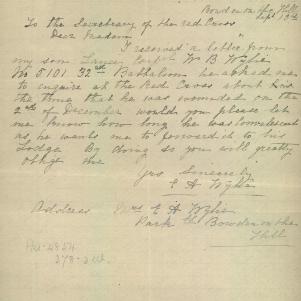 Bowden on the Hill
Sept 13th
To the Secretary of the red Cross
Dear Madam
I received a letter from
my son Lance Corpl W B Wylie
No 5101 32nd Battalion he asked me
to enquire at the Red Cross about his
the time that he was wounded on the
2nd of December would you please let
me know how long he was convalescent
as he wants me to forward it to his
Lodge By doing so you will greatly
oblige me
Yrs Sincerely
E A Wylie
Address Mrs E A Wylie
Park Bowden on the
Hill